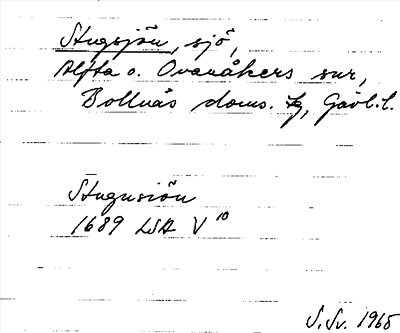 Stugsjön, sjö,
Alfta o. Ovanåkers snr,
Bollnäs doms. tg, Gävl.l.
Stugusiön
1689 LSA V 10
S.Sv. 1965